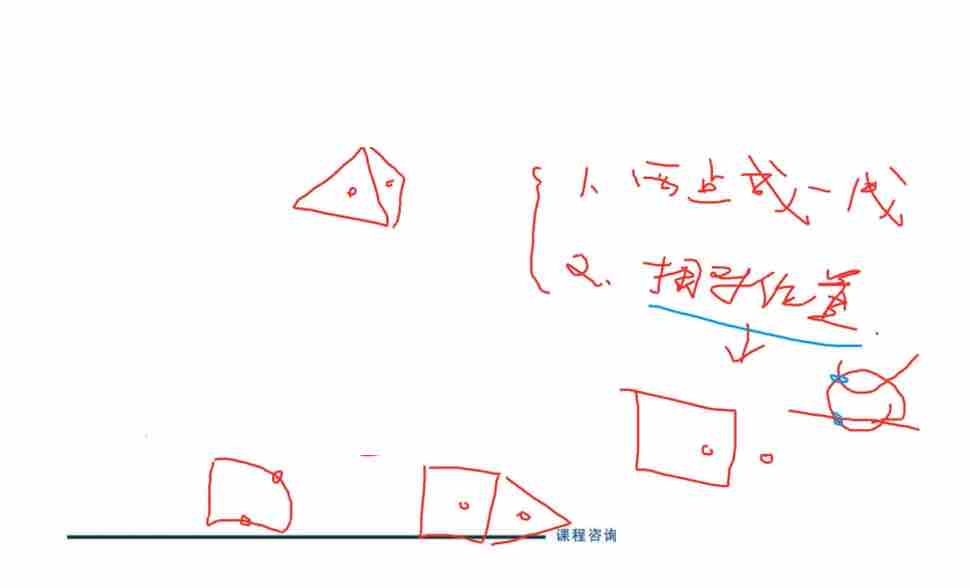 1、两点成一线
2、相对位置
课程咨询